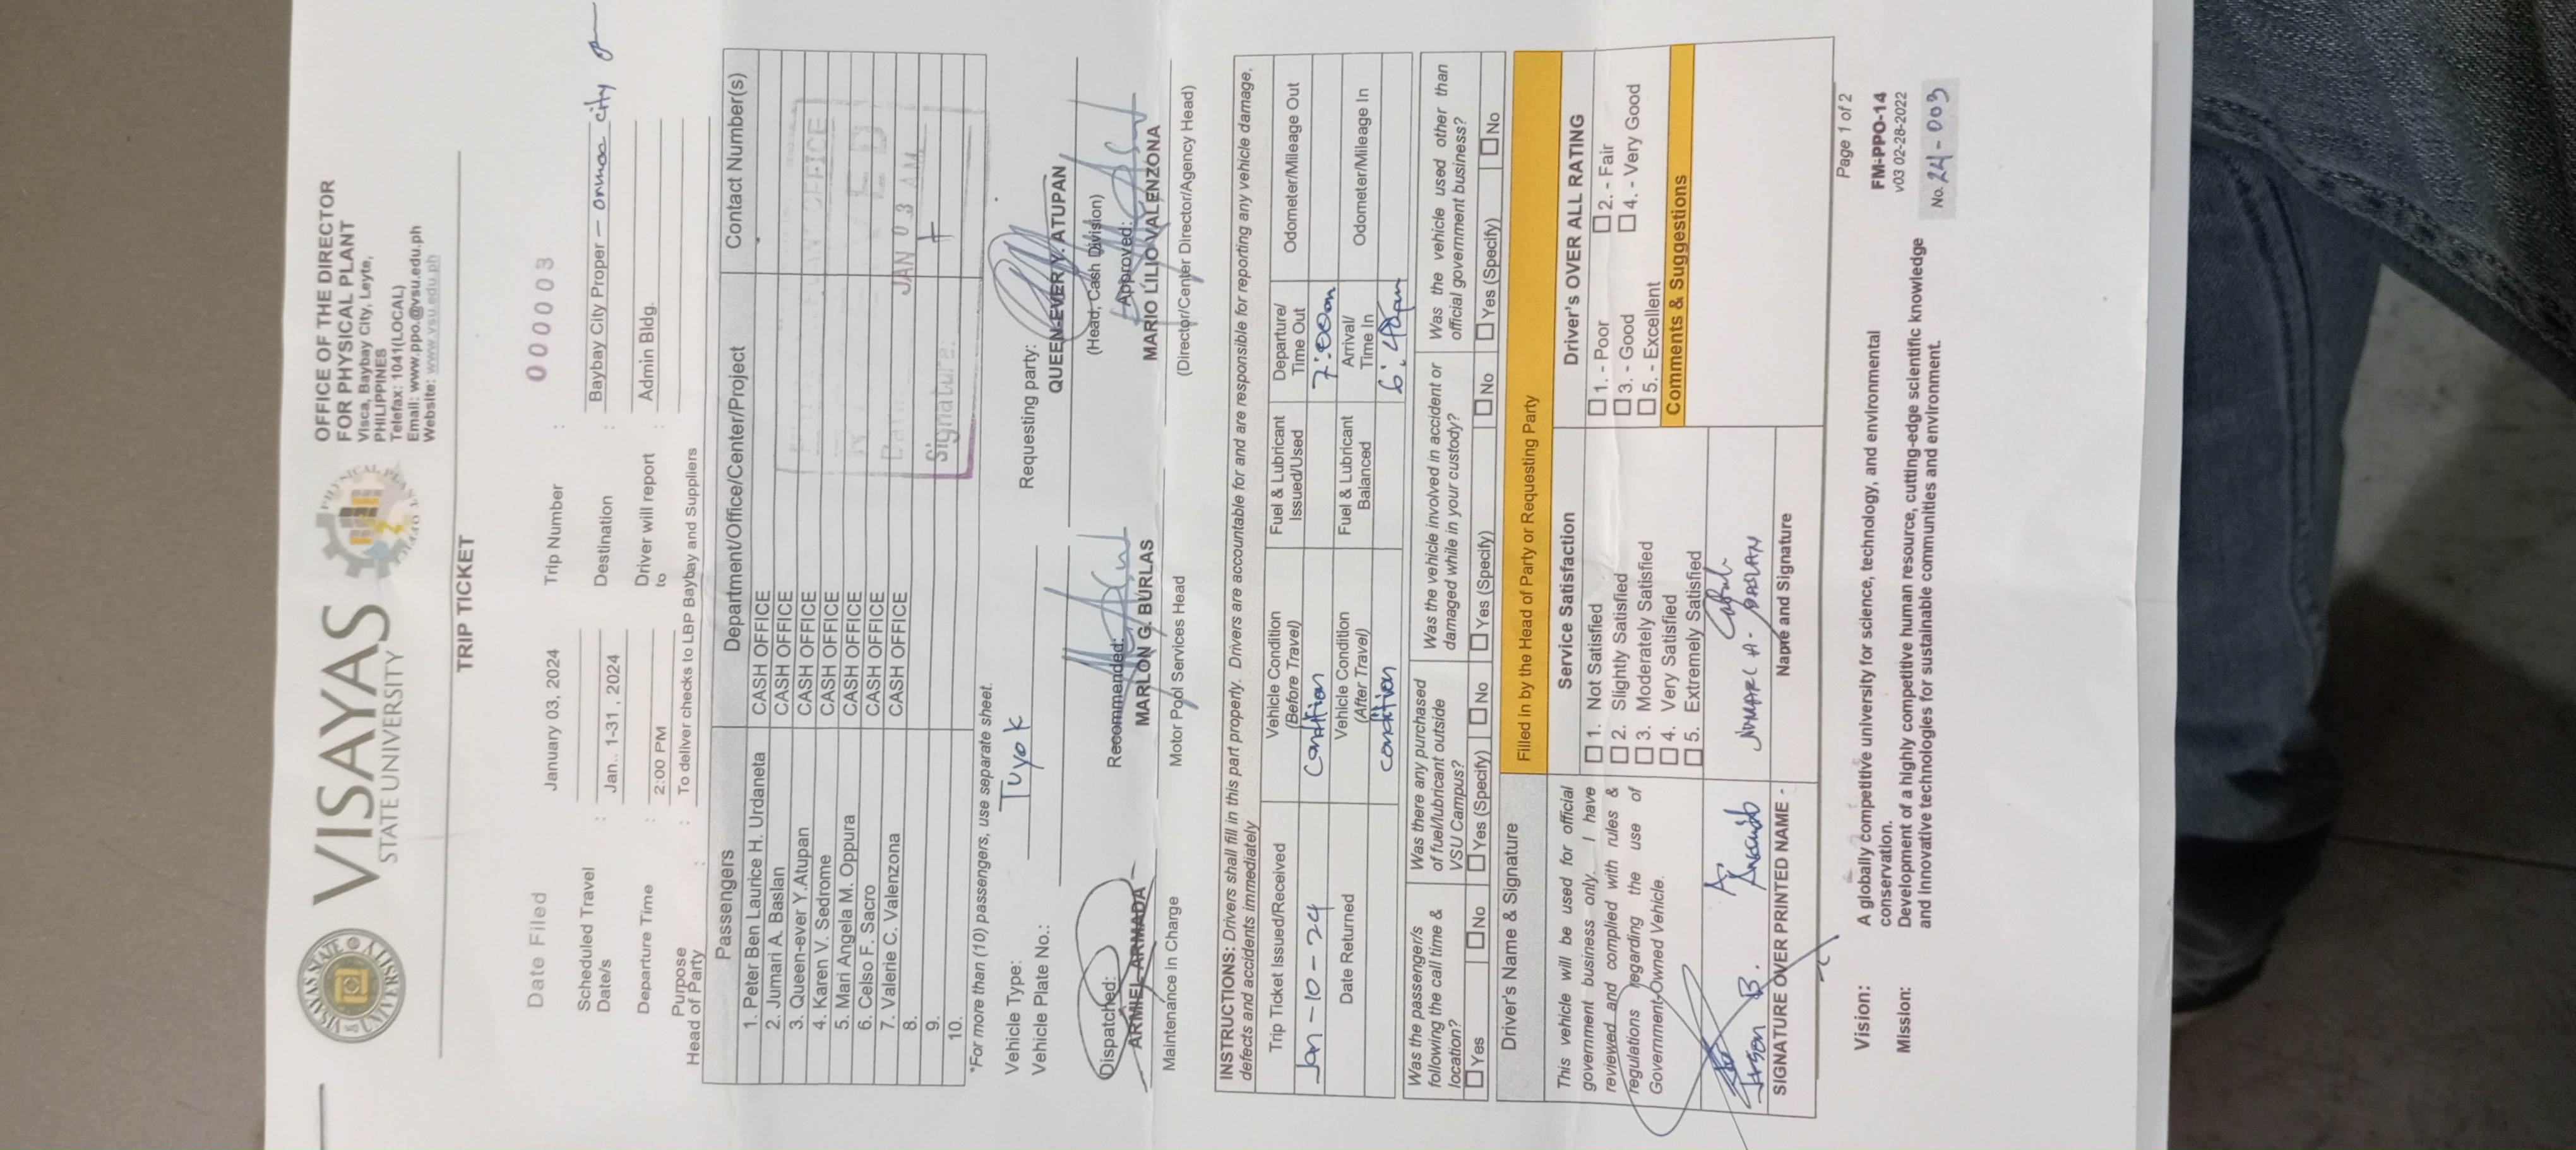 VISAYAS
STATE UNIVERSITY
OFFICE OF THE DIRECTOR
FOR PHYSICAL PLANT
Visca, Baybay City, Leyte,
PHILIPPINES
Telefax: 1041(LOCAL)
Email: www.ppo.@vsu.edu.ph
Website: www.vsu.edu.ph
TRIP TICKET
Date Filed January 03, 2024 Trip Number : 000003
Scheduled Travel Date/s : Jan.. 1-31, 2024 Destination : Baybay City Proper – ormoc city
Departure Time : 2:00 PM Driver will report to : Admin Bldg.
Purpose : To deliver checks to LBP Baybay and Suppliers
Head of Party :
Passengers Department/Office/Center/Project Contact Number(s)
1. Peter Ben Laurice H. Urdaneta CASH OFFICE
2. Jumari A. Baslan CASH OFFICE
3. Queen-ever Y.Atupan CASH OFFICE
4. Karen V. Sedrome CASH OFFICE
5. Mari Angela M. Oppura CASH OFFICE
6. Celso F. Sacro CASH OFFICE
7. Valerie C. Valenzona CASH OFFICE
8.
9.
10.
OFFICE
JAN 03 AM
Signature:
*For more than (10) passengers, use separate sheet.
Vehicle Type: Tuyok Requesting party:
Vehicle Plate No.: QUEEN-EVER Y. ATUPAN
(Head, Cash Division)
Dispatched: Recommended: Approved:
ARMIEL ARMADA MARLON G. BURLAS MARIO LILIO VALENZONA
Maintenance in Charge Motor Pool Services Head (Director/Center Director/Agency Head)
INSTRUCTIONS: Drivers shall fill in this part property. Drivers are accountable for and are responsible for reporting any vehicle damage,
defects and accidents immediately
Trip Ticket Issued/Received Vehicle Condition (Before Travel) Fuel & Lubricant Issued/Used Departure/ Time Out Odometer/Mileage Out
Jan-10-24 Condition 7:00am
Date Returned Vehicle Condition (After Travel) Fuel & Lubricant Balanced Arrival/ Time In Odometer/Mileage In
condition 6:40pm
Was the passenger/s following the call time & location? Was there any purchased of fuel/lubricant outside VSU Campus? Was the vehicle involved in accident or damaged while in your custody? Was the vehicle used other than official government business?
Yes No Yes (Specify) No Yes (Specify) No Yes (Specify) No
Driver's Name & Signature Filled in by the Head of Party or Requesting Party
This vehicle will be used for official
government business only. I have
reviewed and complied with rules &
regulations regarding the use of
Government-Owned Vehicle.
Service Satisfaction
1. Not Satisfied
2. Slightly Satisfied
3. Moderately Satisfied
4. Very Satisfied
5. Extremely Satisfied
Driver's OVER ALL RATING
1. - Poor 2. - Fair
3. - Good 4. - Very Good
5. - Excellent
Comments & Suggestions
SIGNATURE OVER PRINTED NAME -
Name and Signature
Page 1 of 2
Vision: A globally competitive university for science, technology, and environmental
conservation.
Mission: Development of a highly competitive human resource, cutting-edge scientific knowledge
and innovative technologies for sustainable communities and environment.
FM-PPO-14
v03 02-28-2022
No. 24-003